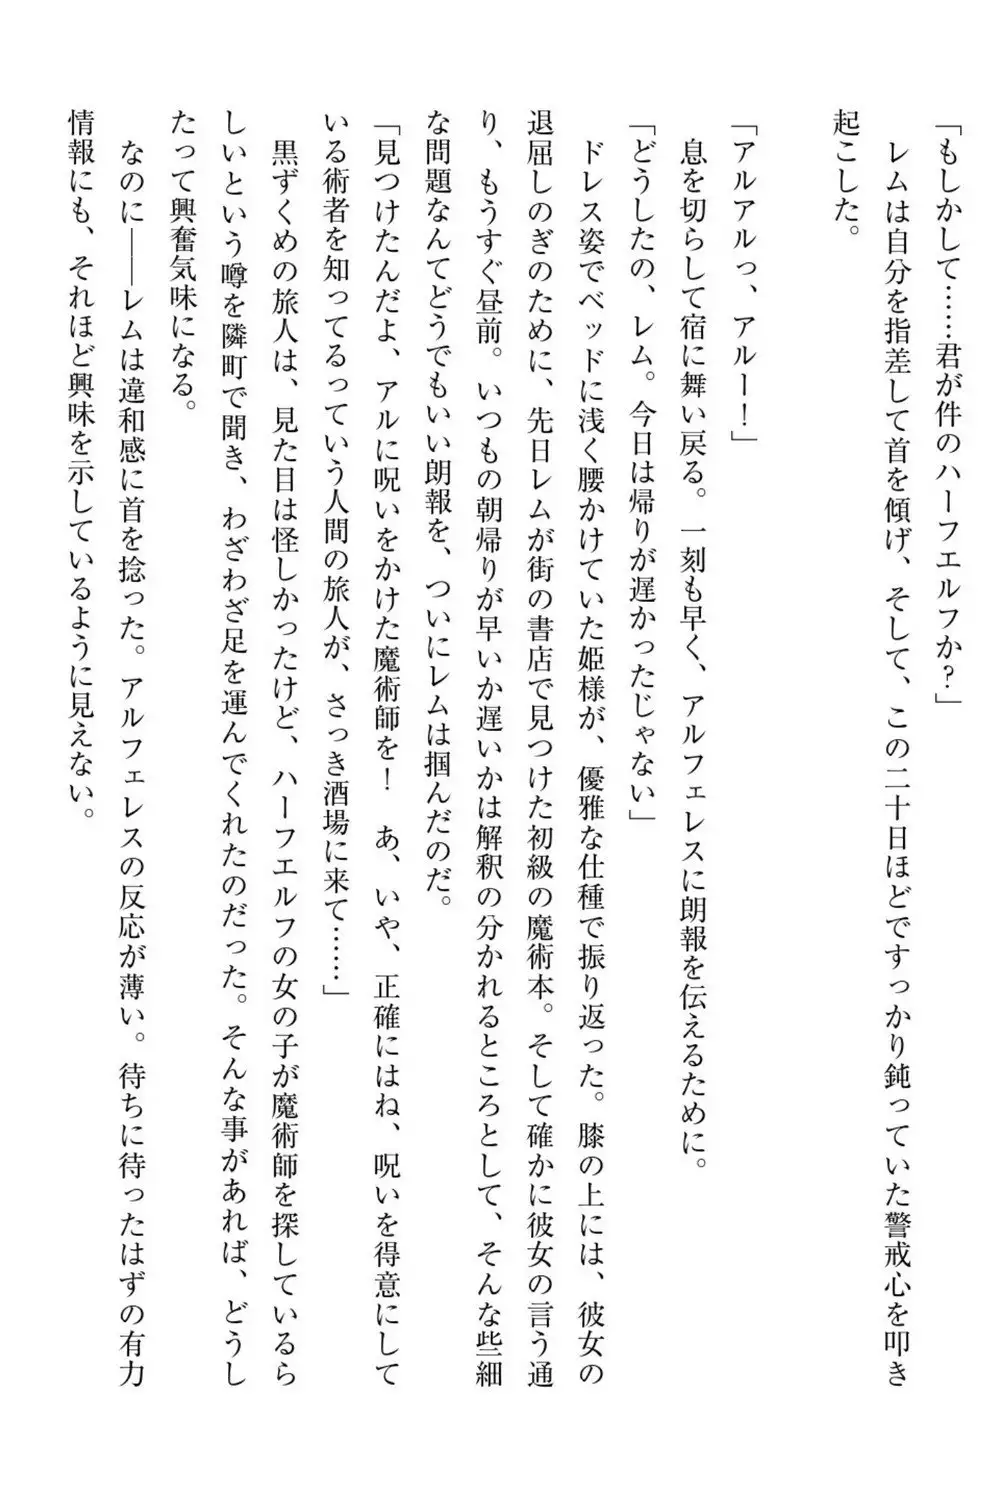 「もしかして……君が件のハーフエルフか？」
レムは自分を指差して首を傾げ、そして、この二十日ほどですっかり鈍っていた警戒心を叩き
起こした。
「アルアルっ、アルー！」
息を切らして宿に舞い戻る。一刻も早く、アルフェレスに朗報を伝えるために。
「どうしたの、レム。今日は帰りが遅かったじゃない」
ドレス姿でベッドに浅く腰かけていた姫様が、優雅な仕種で振り返った。膝の上には、彼女の
退屈しのぎのために、先日レムが街の書店で見つけた初級の魔術本。そして確かに彼女の言う通
り、もうすぐ昼前。いつもの朝帰りが早いか遅いかは解釈の分かれるところとして、そんな些細
な問題なんてどうでもいい朗報を、ついにレムは掴んだのだ。
「見つけたんだよ、アルに呪いをかけた魔術師を！　あ、いや、正確にはね、呪いを得意にして
いる術者を知ってるっていう人間の旅人が、さっき酒場に来て……」
黒ずくめの旅人は、見た目は怪しかったけど、ハーフエルフの女の子が魔術師を探しているら
しいという噂を隣町で聞き、わざわざ足を運んでくれたのだった。そんな事があれば、どうし
たって興奮気味になる。
なのに――レムは違和感に首を捻った。アルフェレスの反応が薄い。待ちに待ったはずの有力
情報にも、それほど興味を示しているように見えない。